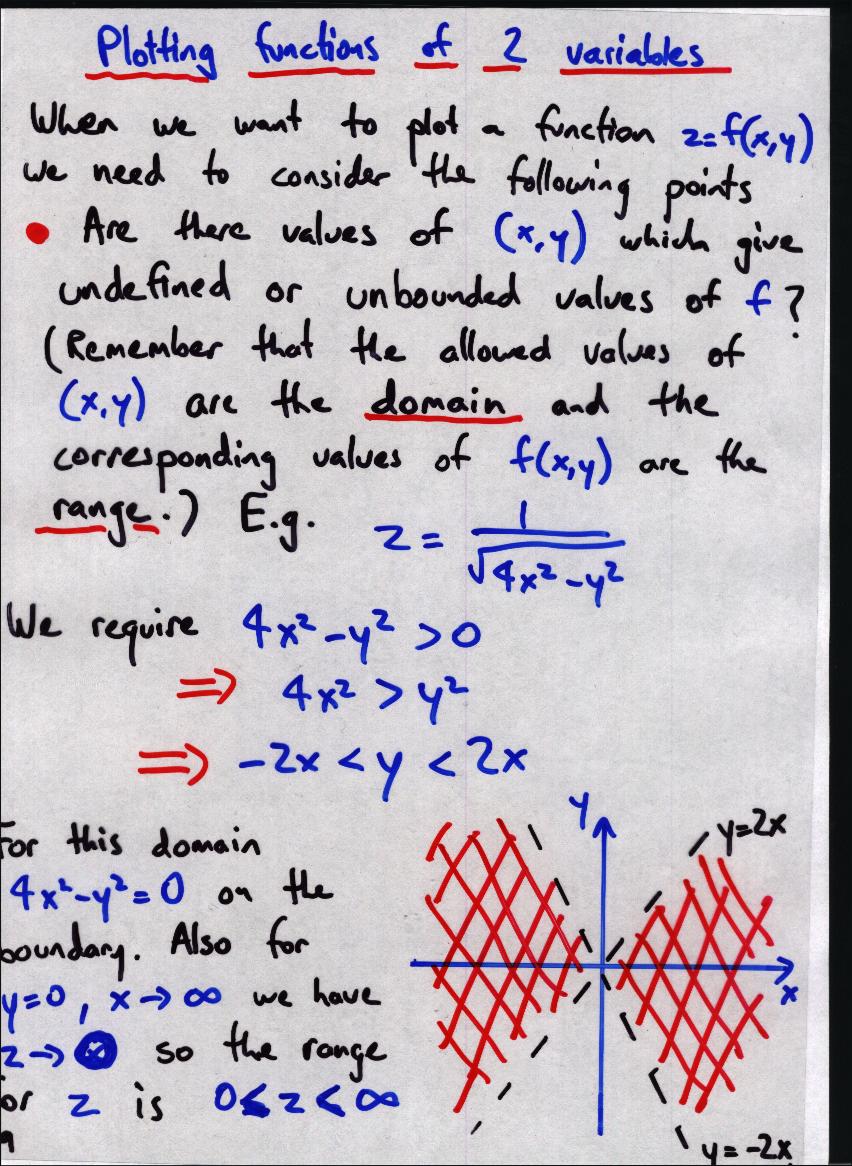 Plotting functions of 2 variables
When we want to plot a function z=f(x,y)
we need to consider the following points
• Are there values of (x,y) which give
undefined or unbounded values of f?
(Remember that the allowed values of
(x,y) are the domain and the
corresponding values of f(x,y) are the
range.) E.g. z = 1/√(4x²-y²)
We require 4x²-y² >0
⇒ 4x² > y²
⇒ -2x < y < 2x
For this domain
4x²-y²=0 on the
boundary. Also for
y=0, x→∞ we have
z→ so the range
or z is < z < ∞
9
y
y=2x
x
y=-2x